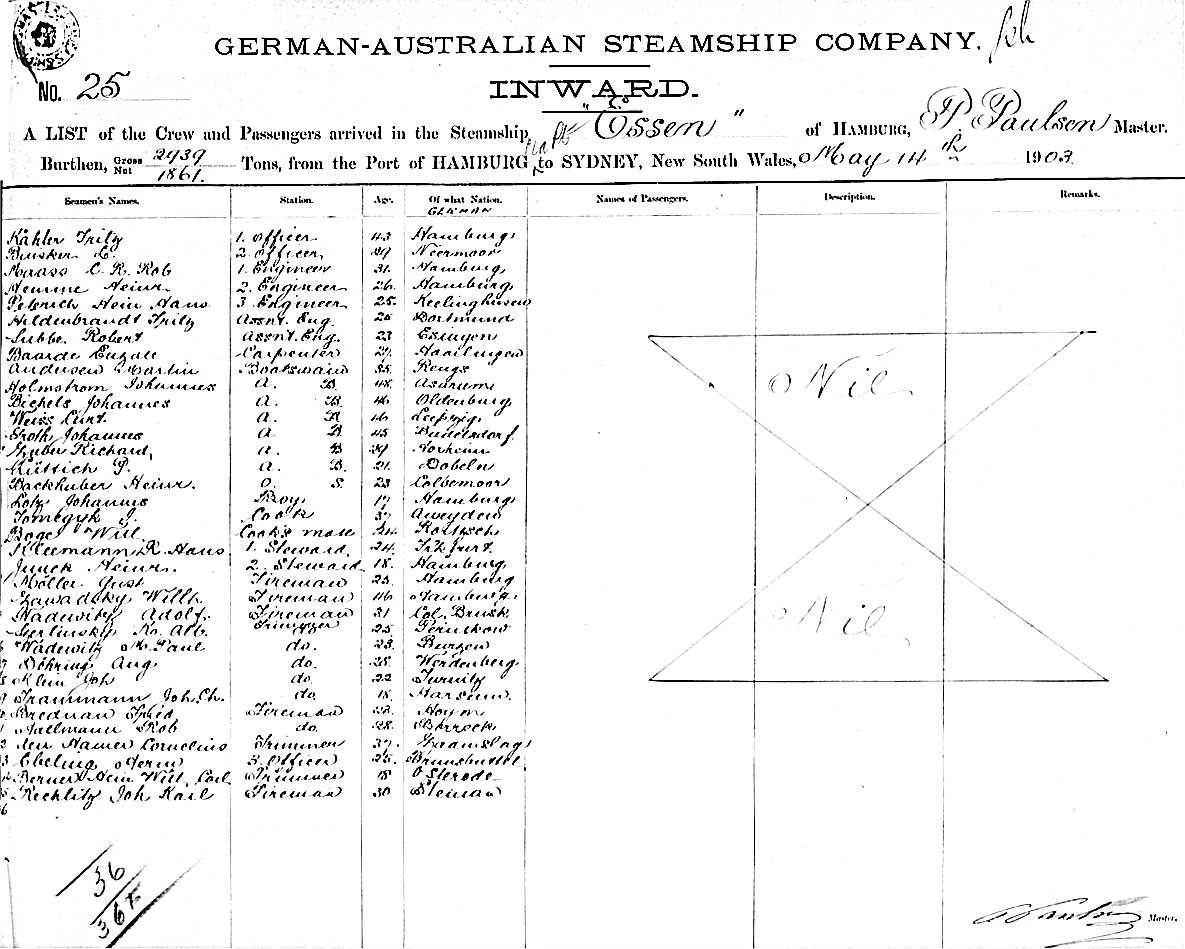 GERMAN-AUSTRALIAN STEAMSHIP COMPANY.
No. 25
INWARD.
A LIST of the Crew and Passengers arrived in the Steamship "Essen" of HAMBURG, P. Paulsen Master.
Burthen, Gross 2939 Net 1861. Tons, from the Port of HAMBURG to SYDNEY, New South Wales, May 14th 1903
Seamen's Names. Station. Age. Of what Nation. Names of Passengers. Description. Remarks.
GERMAN
Kähler Fritz 1. Officer 43 Hamburg
Busker C. 2. Officer 29 Neermoor
Maass C. R. Rob 1. Engineer 31. Hamburg
Hemme Heinr. 2. Engineer 26. Hamburg
Peterich Hein Hans 3 Engineer 25. Keelinghusen
Hildenbrandt Fritz Assnt. Eng. 25 Dortmund
Lubbe Robert Assnt. Eng. 23 Esingen
Baarde Carpenter 29.
Andersen Martin Bootswain 35.
Holmstrom Johannes A. B. 48.
Bickels Johannes A. B. 46 Oldenburg
Weiss Curt. A. B. 46 Leipzig
Groth Johannes A. B 45 Büdelsdorf.
Huber Richard, A. B 29 Norheim
P. A. B. 21. Döbeln
Backhuber Heinr. O. S. 23 Colbemoor
Lotz Johannes Boy 17 Hamburg
J. Cook 37 Aweyden
Boge Will Cook's mate 34
Kleemann R. Hans 1. Steward. 24. Frkfurt.
Junck Heinr. 2. Steward 18. Hamburg
Möller Gust Fireman 25. Hamburg
Zawadsky Willh Fireman 46 Hamburg
Wadewitz Adolf. Fireman 31 Col. Brusk
Gerlinsky Alb. Trimmer do. 25.
Wadewitz M. Paul do. 23. Burzen
Döhring Aug do. 28. Werdenberg
Klein Joh do. 22
Trammann Joh. Ch. do. 18. Harsum.
Brednan Fried Fireman 23. Hoym
Hallmann Rob do. 28.
den Hamer Cornelius Trimmer 37. Zaamslag
Ebeling Herm 3. Officer 25. Brunsbüttel
Berner Hein Will. Carl Trimmer 18 Osterode
Recklitz Joh Karl Fireman 30
Nil
Nil
36
36
Paulsen Master.